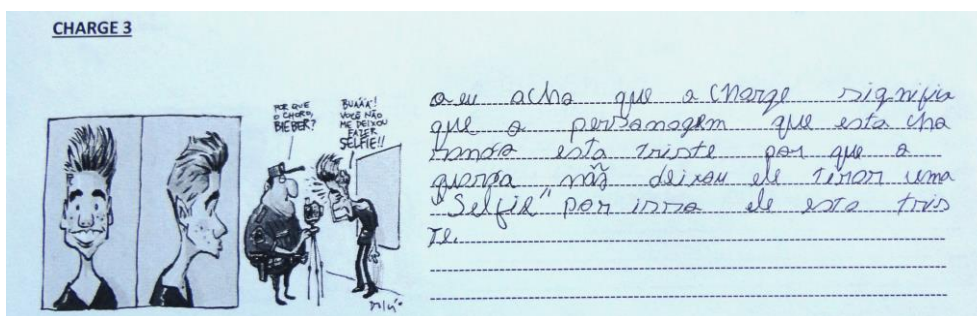 CHARGE 3
POR QUE
O CHORO,
BIEBER?
BUÁÁÁ!
VOCÊ NÃO
ME DEIXOU
FAZER
SELFIE!!
a eu acho que a charge signifia
que o personagem que esta cho
rando esta triste por que o
guarda não deixou ele tirar uma
"Selfie" por isso ele esta tris
te.